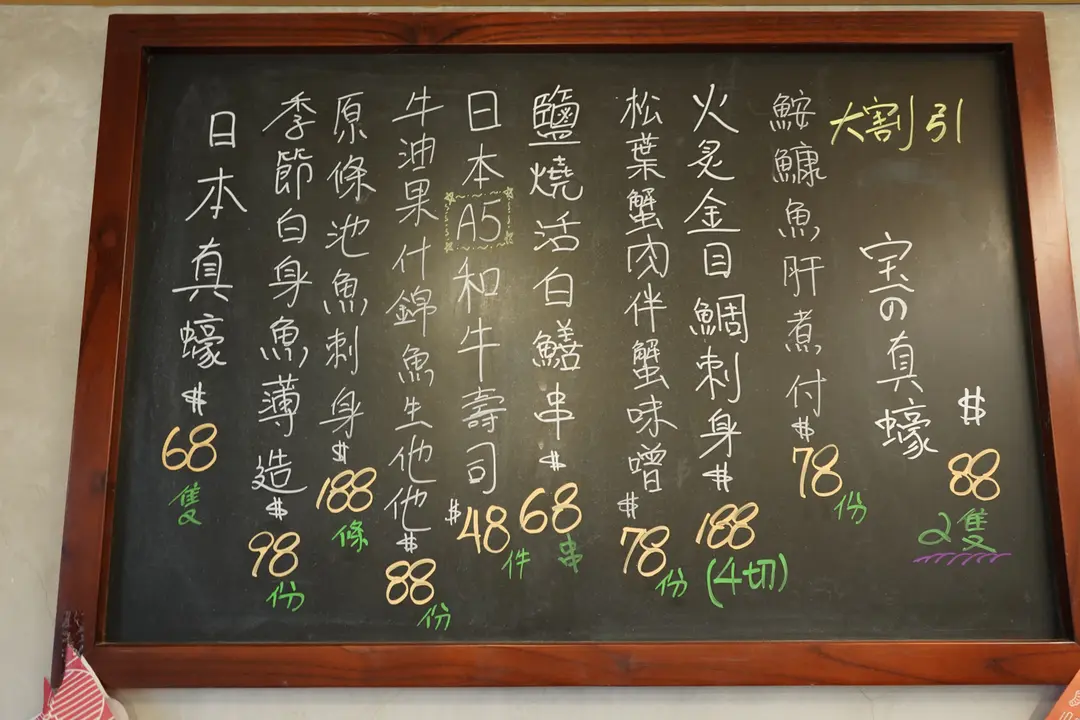 大割引
宝の真蠔 $88 2隻
鮟鱇魚肝煮付 $78 份
火炙金目鯛刺身 $188 (4切)
松葉蟹肉伴蟹味噌 $78 份
鹽燒活白鱔串 $68 串
日本A5和牛壽司 $48 件
牛油果什錦魚生他他 $88 份
原條池魚刺身 $188 條
季節白身魚薄造 $98 份
日本真蠔 $68 隻